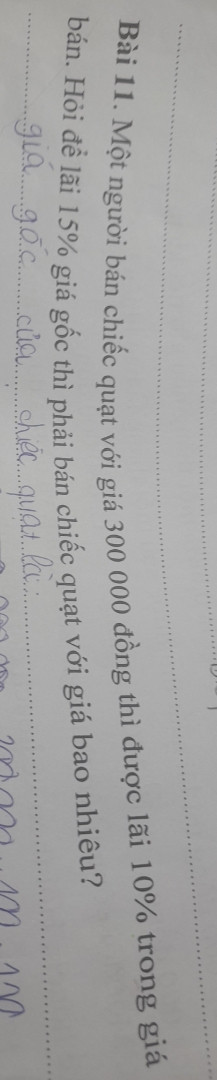 Bài 11. Một người bán chiếc quạt với giá 300 000 đồng thì được lãi 10% trong giá
bán. Hỏi để lãi 15% giá gốc thì phải bán chiếc quạt với giá bao nhiêu?
giá gốc của chiếc quạt là: